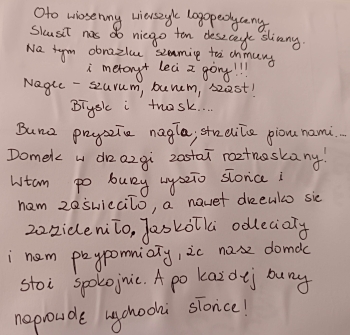 Oto wiosenny wierszyk logopedyczny
Skusił nas do niego ten deszczyk śliczny.
Na tym obrazku szumią też chmury
i meteoryt leci z góry!!!
Nagle - szurum, burum, szast!
Błysk i trask....
Burza przyszła nagła; strzeliła piorunami...
Domek w drzazgi został roztrzaskany!
Wtem po burzy wyszło słońce i
nam zaświeciło, a nawet drzewko się
zazieleniło. Jaskółki odleciały
i nam przypomniały, że nasz domek
stoi spokojnie. A po każdej burzy
naprawdę wychodzi słońce!